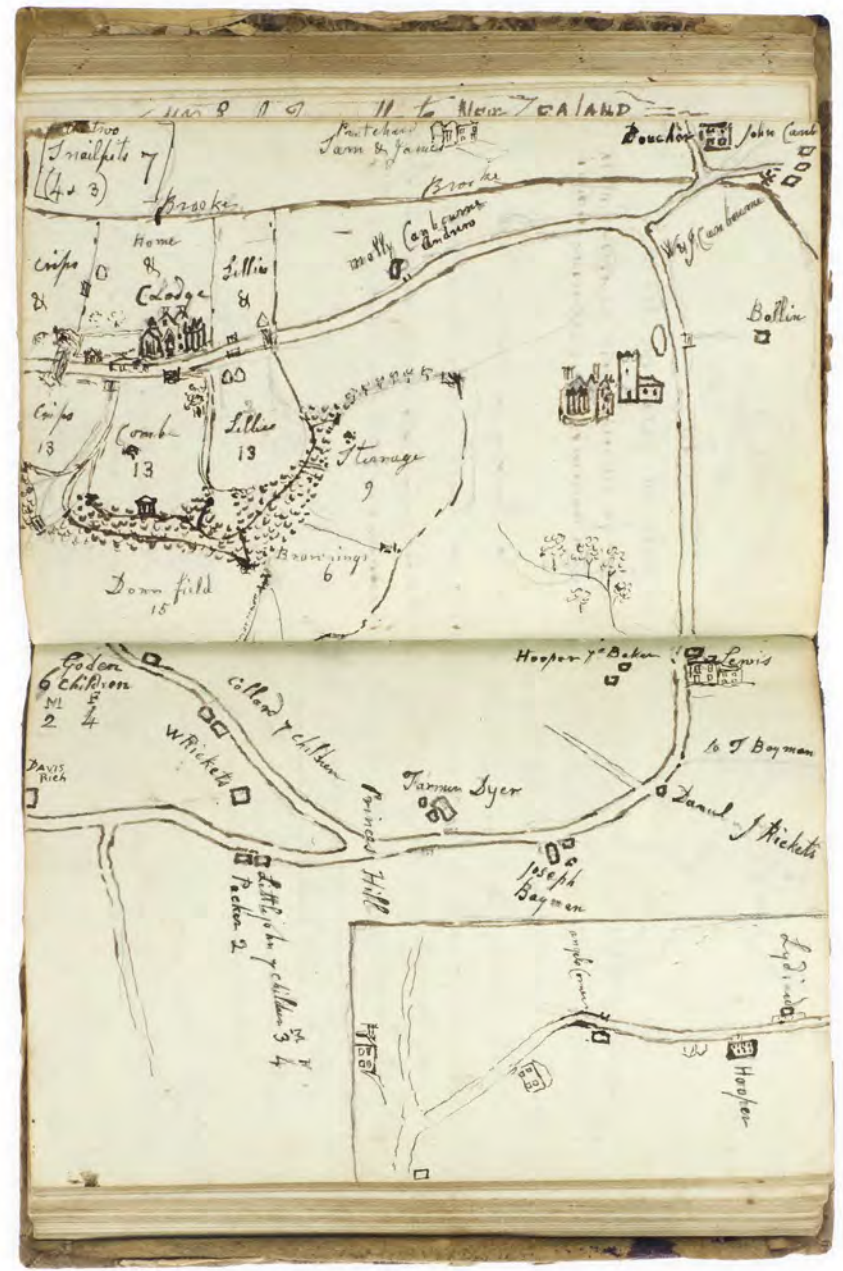 to New ZEALAND
two
Snailpits 7
(4 & 3)
Pritchard
Sam & James
Boucher
John Canb
Brooke
Brooke
Home
&
C Lodge
Crips
&
Lillies
&
Molly Canbourne
Andrew
Wm J Canbourne
Ballin
Crips
13
Comb
13
Lillies
13
Sternage
9
Brownings
6
Down field
15
Goden
6 Children
M F
2 4
Collard 7 children
W Rickets
DAVIS
Rich
Hooper ye Baker
Lewis
to J Bayman
Farmer Dyer
Princes Hill
Daniel J Rickets
Joseph
Bayman
Littlejohn 7 children M 3 F 4
Packer 2
Angels Corner
Lydiard
Hooper